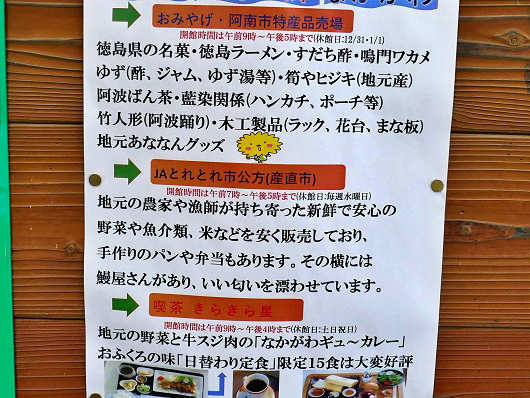 おみやげ・阿南市特産品売場
開館時間は午前9時～午後5時まで(休館日:12/31・1/1)
徳島県の名菓・徳島ラーメン・すだち酢・鳴門ワカメ
ゆず(酢、ジャム、ゆず湯等)・筍やヒジキ(地元産)
阿波ばん茶・藍染関係(ハンカチ、ポーチ等)
竹人形(阿波踊り)・木工製品(ラック、花台、まな板)
地元あななんグッズ
JAとれとれ市公方(産直市)
開館時間は午前7時～午後5時まで(休館日:毎週水曜日)
地元の農家や漁師が持ち寄った新鮮で安心の
野菜や魚介類、米などを安く販売しており、
手作りのパンや弁当もあります。その横には
鰻屋さんがあり、いい匂いを漂わせています。
喫茶 きらきら星
開館時間は午前9時～午後4時まで(休館日:土日祝日)
地元の野菜と牛スジ肉の「なかがわギュ～カレー」
おふくろの味「日替わり定食」限定15食は大変好評